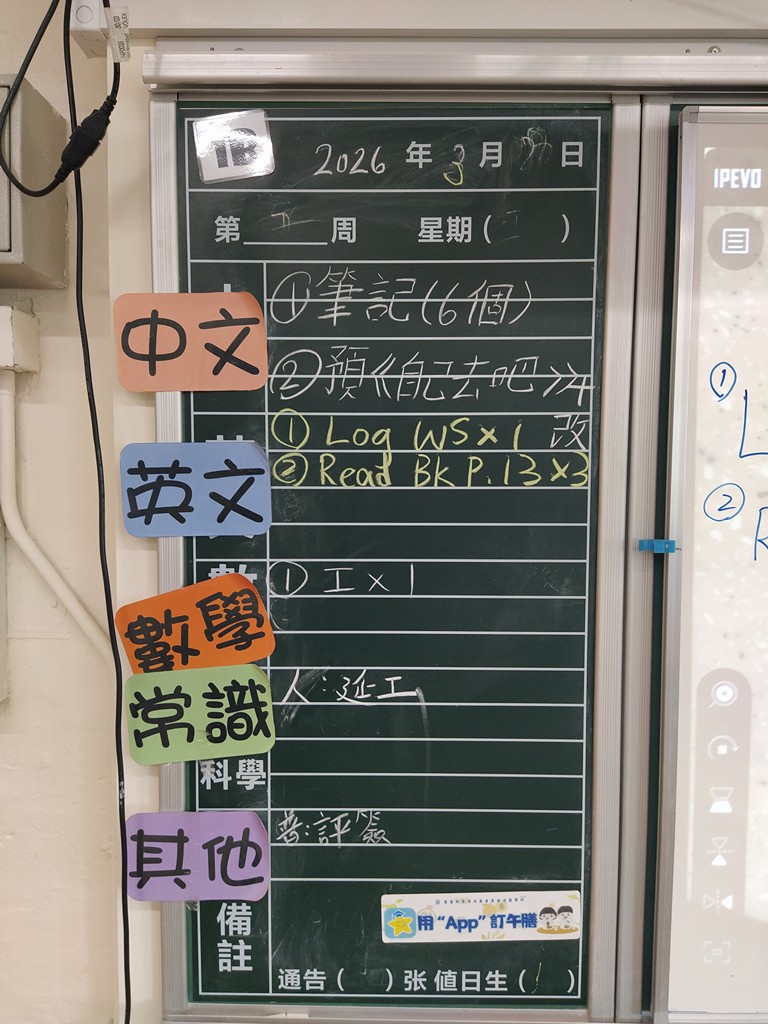 1B
2026 年 3 月 日
第 周 星期 ( )
中文
① 筆記(6個)
② 預《自己去吧》×4
英文
① Log WS x 1 改
② Read BK P. 13 x3
數學
① 工 x 1
常識
人:延工
科學
其他
普:評簽
備註
用 "App" 訂午膳
通告 ( ) 张 值日生 ( )
IPEVO
①
L
②
R